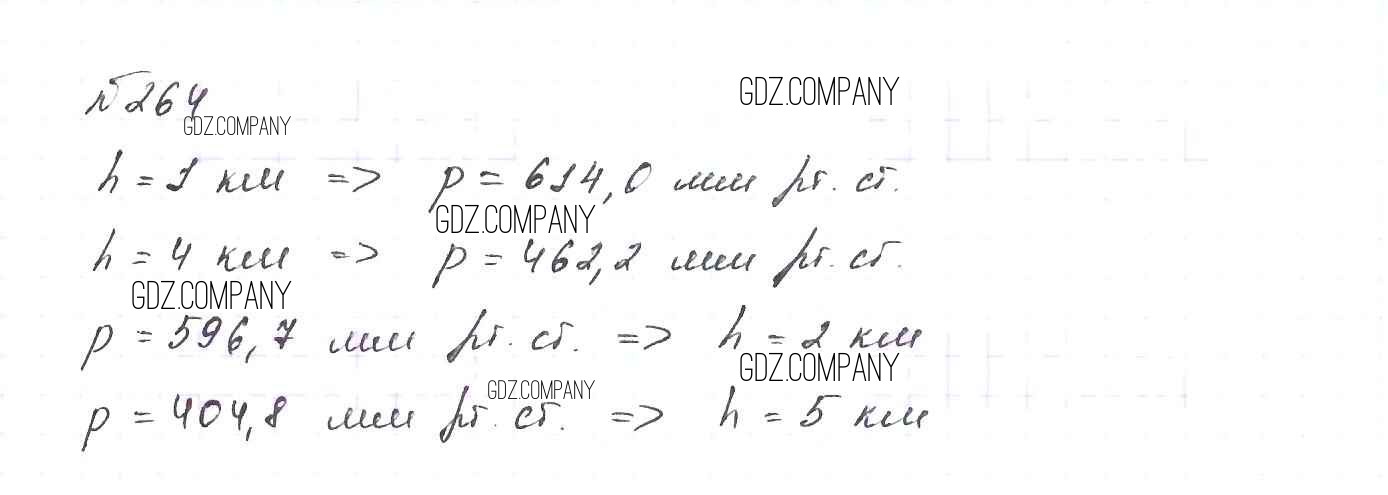 № 264
GDZ.COMPANY
GDZ.COMPANY
h = 1 км => p = 614,0 мм рт. ст.
GDZ.COMPANY
h = 4 км => p = 462,2 мм рт. ст.
GDZ.COMPANY
p = 596,7 мм рт. ст. => h = 2 км
GDZ.COMPANY
GDZ.COMPANY
p = 404,8 мм рт. ст. => h = 5 км